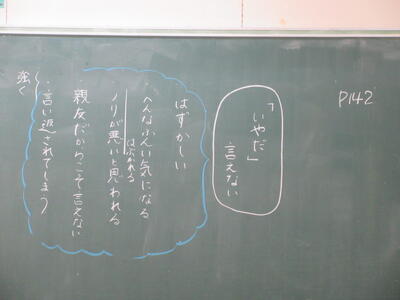 P142
「いやだ」
言えない
はずかしい
へんなふんい気になる
ノリが悪いと思われる
はぶかれる
親友だからこそ言えない
・言い返されてしまう
強く